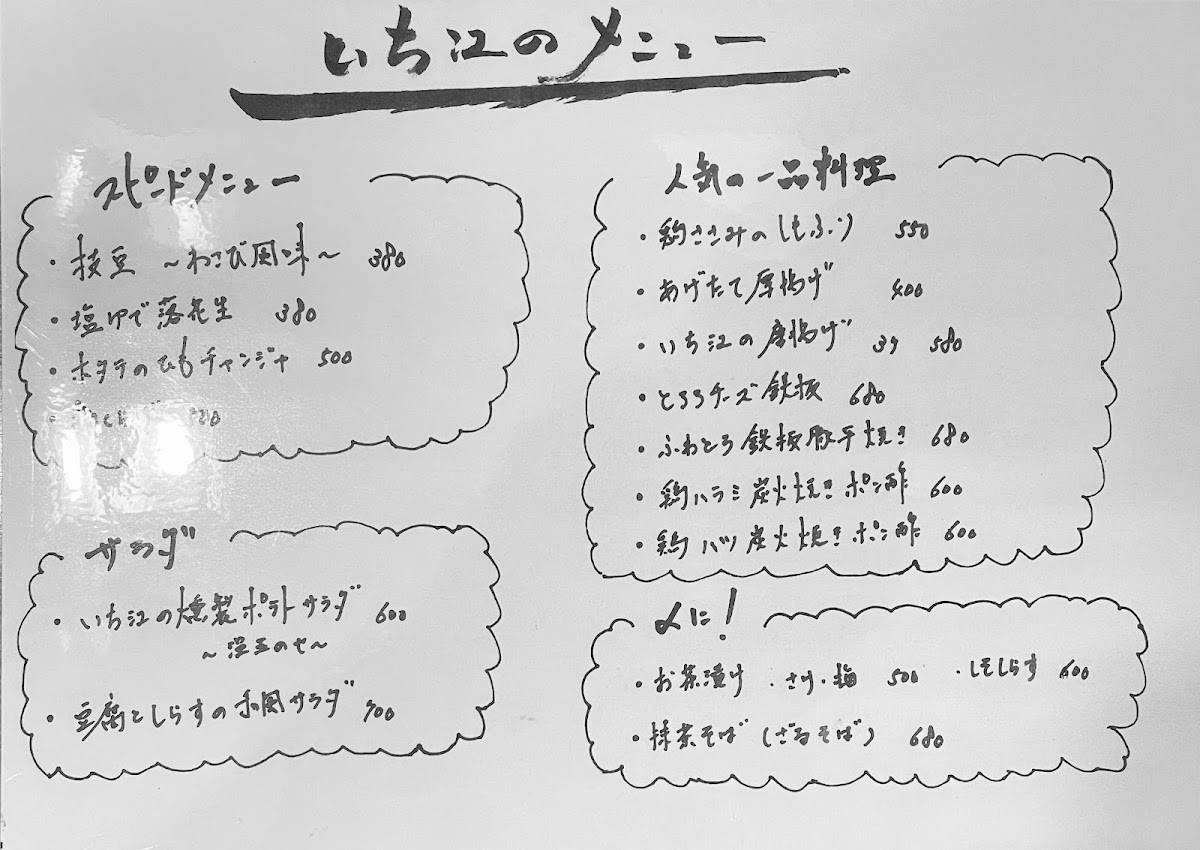 いち江のメニュー
スピードメニュー
・枝豆 〜わさび風味〜 380
・塩ゆで落花生 380
・ホタテのひもチャンジャ 500
サラダ
・いち江の燻製ポテトサラダ 600
〜温玉のせ〜
・豆腐としらすの和風サラダ 700
人気の一品料理
・鶏ささみのしもふり 550
・あげたて厚揚げ 400
・いち江の唐揚げ 3ケ 580
・とろろチーズ鉄板 680
・ふわとろ鉄板豚平焼き 680
・鶏ハラミ炭火焼きポン酢 600
・鶏ハツ炭火焼きポン酢 600
〆に!
・お茶漬け ・さけ・梅 500 ・しそしらす 600
・抹茶そば (ざるそば) 680